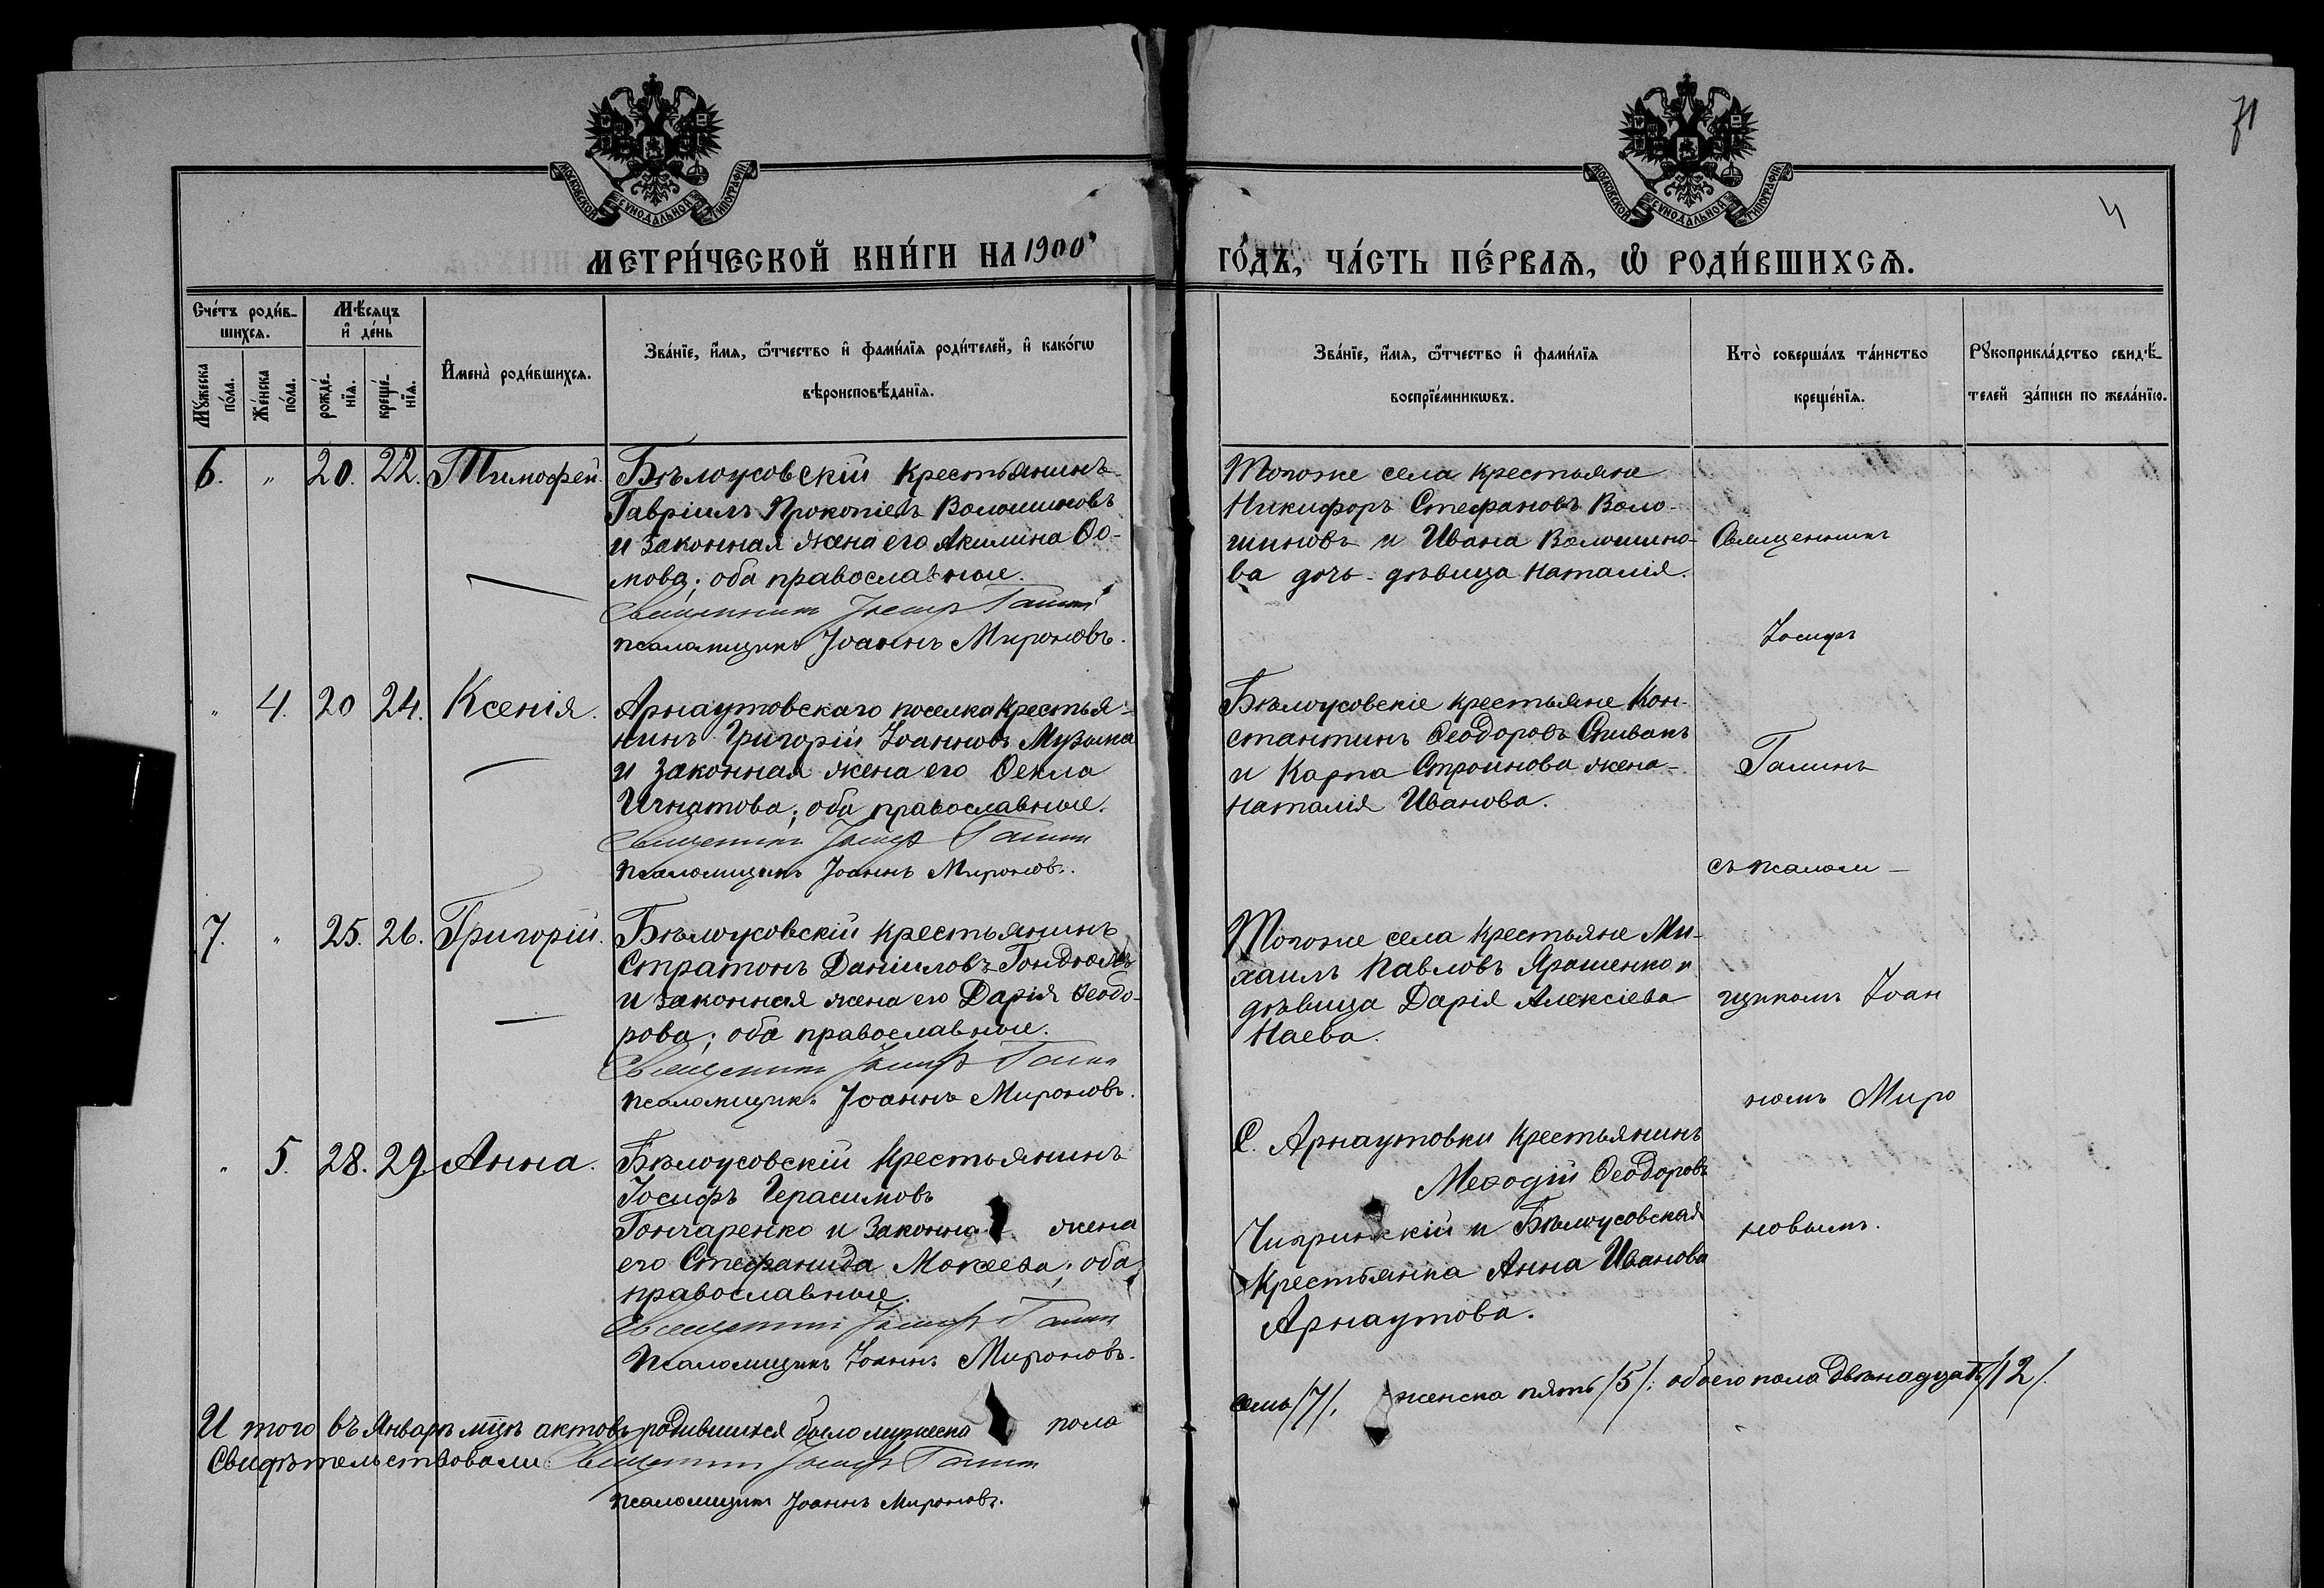 71
4
МОСКОВСКОЙ СѴНОДАЛЬНОЙ ТИПОГРАФІИ
МОСКОВСКОЙ СѴНОДАЛЬНОЙ ТИПОГРАФІИ
МЕТРИ́ЧЕСКОЙ КНИ́ГИ НА 1900
ГО́ДЪ, ЧА́СТЬ ПЕ́РВАѦ, Ѡ РОДИ́ВШИХСѦ.
Сче́тъ роди́в-
шихсѧ.
Мꙋ́жеска
по́ла.
Же́нска
по́ла.
Мѣ́сѧцъ
и҆ де́нь
рожде́-
нїѧ.
креще́-
нїѧ.
И҆мена̀ роди́вшихсѧ.
Зва́нїе, и҆́мѧ, ѻ҆́тчество и҆ фами́лїѧ роди́телей, и҆ како́гѡ
вѣроисповѣ́данїѧ.
Зва́нїе, и҆́мѧ, ѻ҆́тчество и҆ фами́лїѧ
воспрїе́мникѡвъ.
Кто̀ соверша́лъ та́инство
креще́нїѧ.
Рꙋкоприкла́дство свидѣ́-
телей за́писи по жела́нїю.
6. " 20. 22. Тимофей.
Бѣлоусовскій крестьянинъ
Гавріилъ Прокопіевъ Волошиновъ
и законная жена его Акилина Ѳо-
мова; оба православные.
Священникъ Іосифъ Галинъ
псаломщикъ Іоаннъ Мироновъ.
Тогоже села крестьяне
Никифоръ Стефановъ Воло-
шиновъ и Ивана Волошино-
ва дочь-дѣвица Наталія.
" 4. 20 24. Ксенія.
Арнаутовскаго поселка крестья-
нинъ Григорій Іоанновъ Музыка
и законная жена его Ѳекла
Игнатова; оба православные.
Священникъ Іосифъ Галинъ
псаломщикъ Іоаннъ Мироновъ.
Бѣлоусовскіе крестьяне Кон-
стантинъ Ѳеодоровъ Спивакъ
и Карпа Стройнова жена-
Наталія Иванова.
7. " 25. 26. Григорій.
Бѣлоусовскій крестьянинъ
Стратонъ Даніиловъ
и законная жена его Дарія Ѳеодо-
рова; оба православные.
Священникъ Іосифъ Галинъ
псаломщикъ Іоаннъ Мироновъ.
Тогоже села крестьяне Ми-
хаилъ Павловъ Ярошенко и
дѣвица Дарія Алексіева
Наева.
" 5. 28. 29. Анна.
Бѣлоусовскій крестьянинъ
Іосифъ Герасимовъ
Гончаренко и законная жена
его Стефанида Мокеева; оба
православные.
Священникъ Іосифъ Галинъ
псаломщикъ Іоаннъ Мироновъ.
С. Арнаутовки крестьянинъ
Меѳодій Ѳеодоровъ
Чигринскій и Бѣлоусовская
крестьянка Анна Иванова
Арнаутова.
Священникъ
Іосифъ
Галинъ
съ псалом-
щикомъ Іоан
номъ Миро
новымъ.
Итого въ Январѣ мцѣ актовъ родившихся было мужеска пола
семь /7/, женска пять /5/; обоего пола двѣнадцать /12/.
Свидѣтельствовали: Священникъ Іосифъ Галинъ
псаломщикъ Іоаннъ Мироновъ.